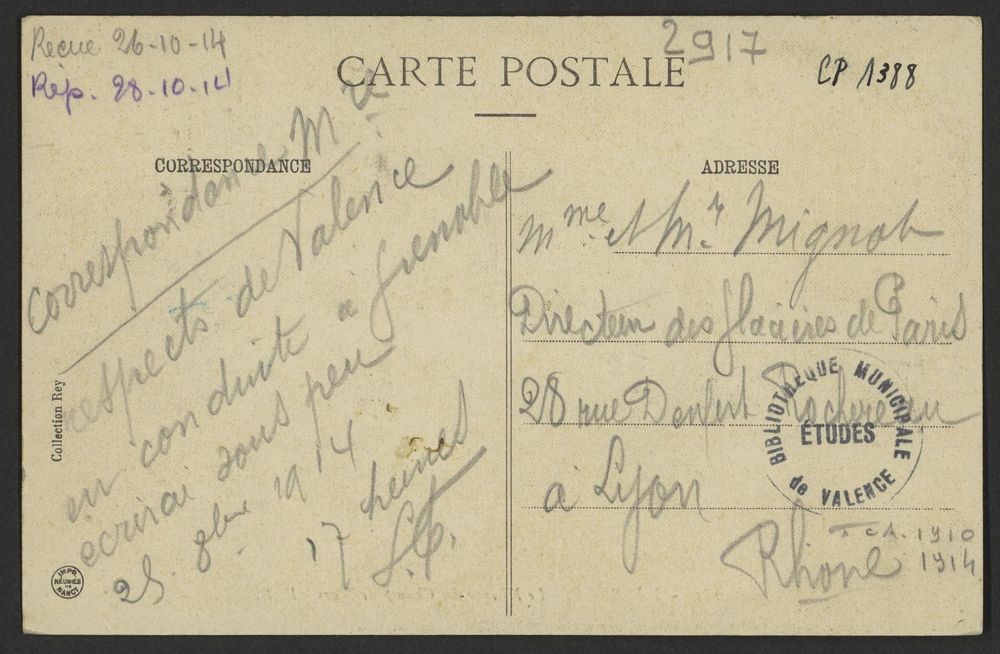 Recue 26-10-14
Rép. 28.10.14
2917
CARTE POSTALE
CP 1388
CORRESPONDANCE
Correspondance Mre
respects de Valence
en conduite à Grenoble
écrirai sous peu
25. 8bre 1914
17 heures
Collection Rey
IMPR. RÉUNIES DE NANCY
ADRESSE
Mme et Mr Mignot
Directeur des Glacières de Paris
28 rue Denfert Rochereau
à Lyon
Rhône
BIBLIOTHEQUE MUNICIPALE
ÉTUDES
de VALENCE
CA. 1910
1914